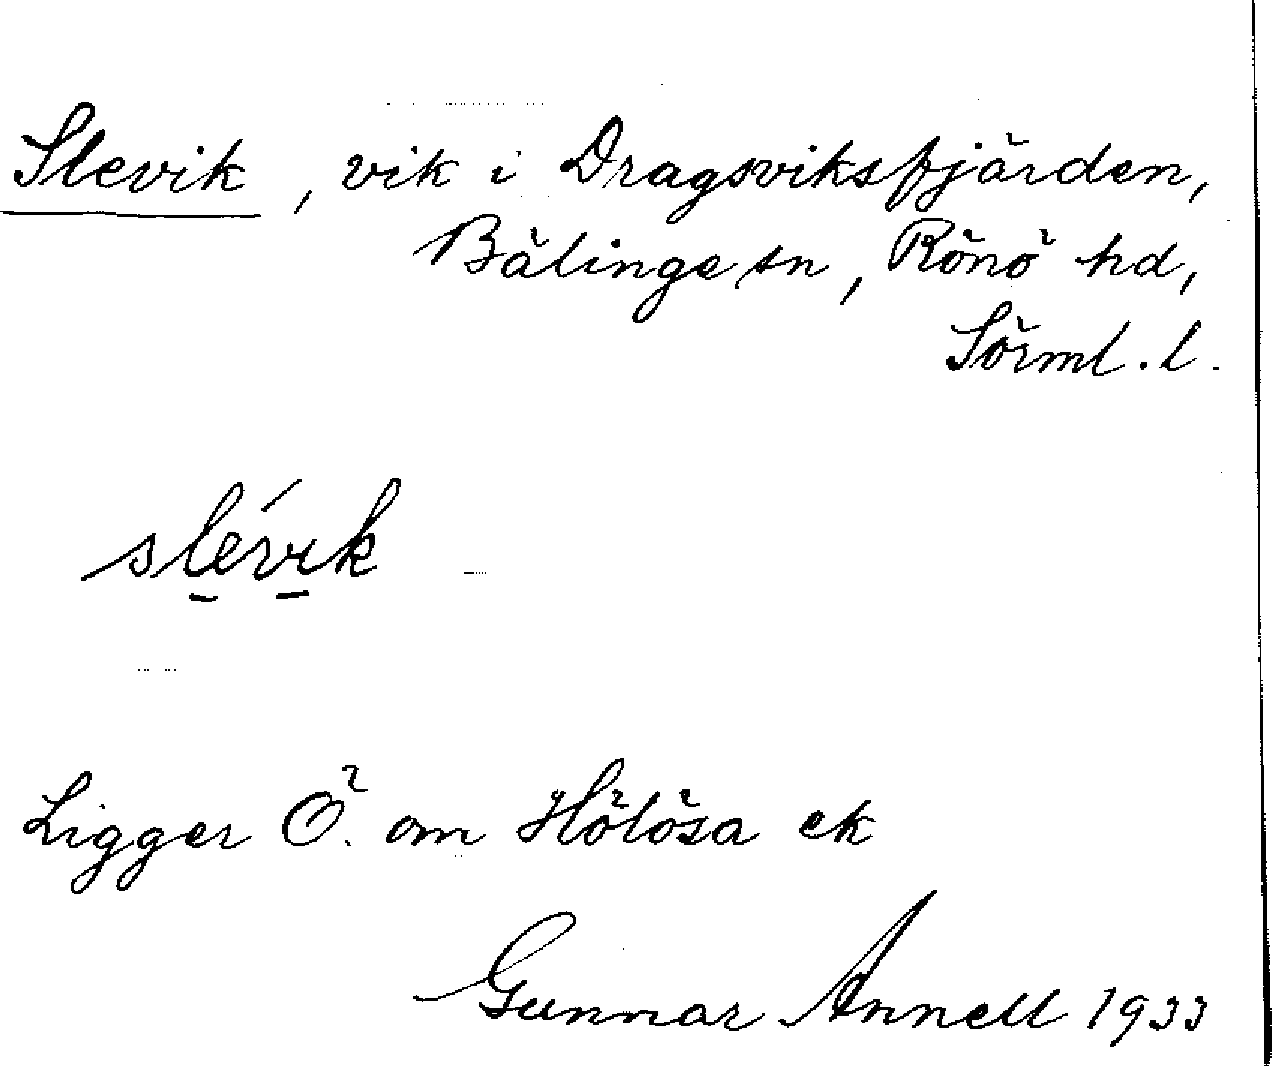 Slevik, vik i Dragsviksfjärden,
Bälinge sn, Rönö hd,
Sörml. l.
slévik
Ligger Ö. om Hölösa ek
Gunnar Annell 1933